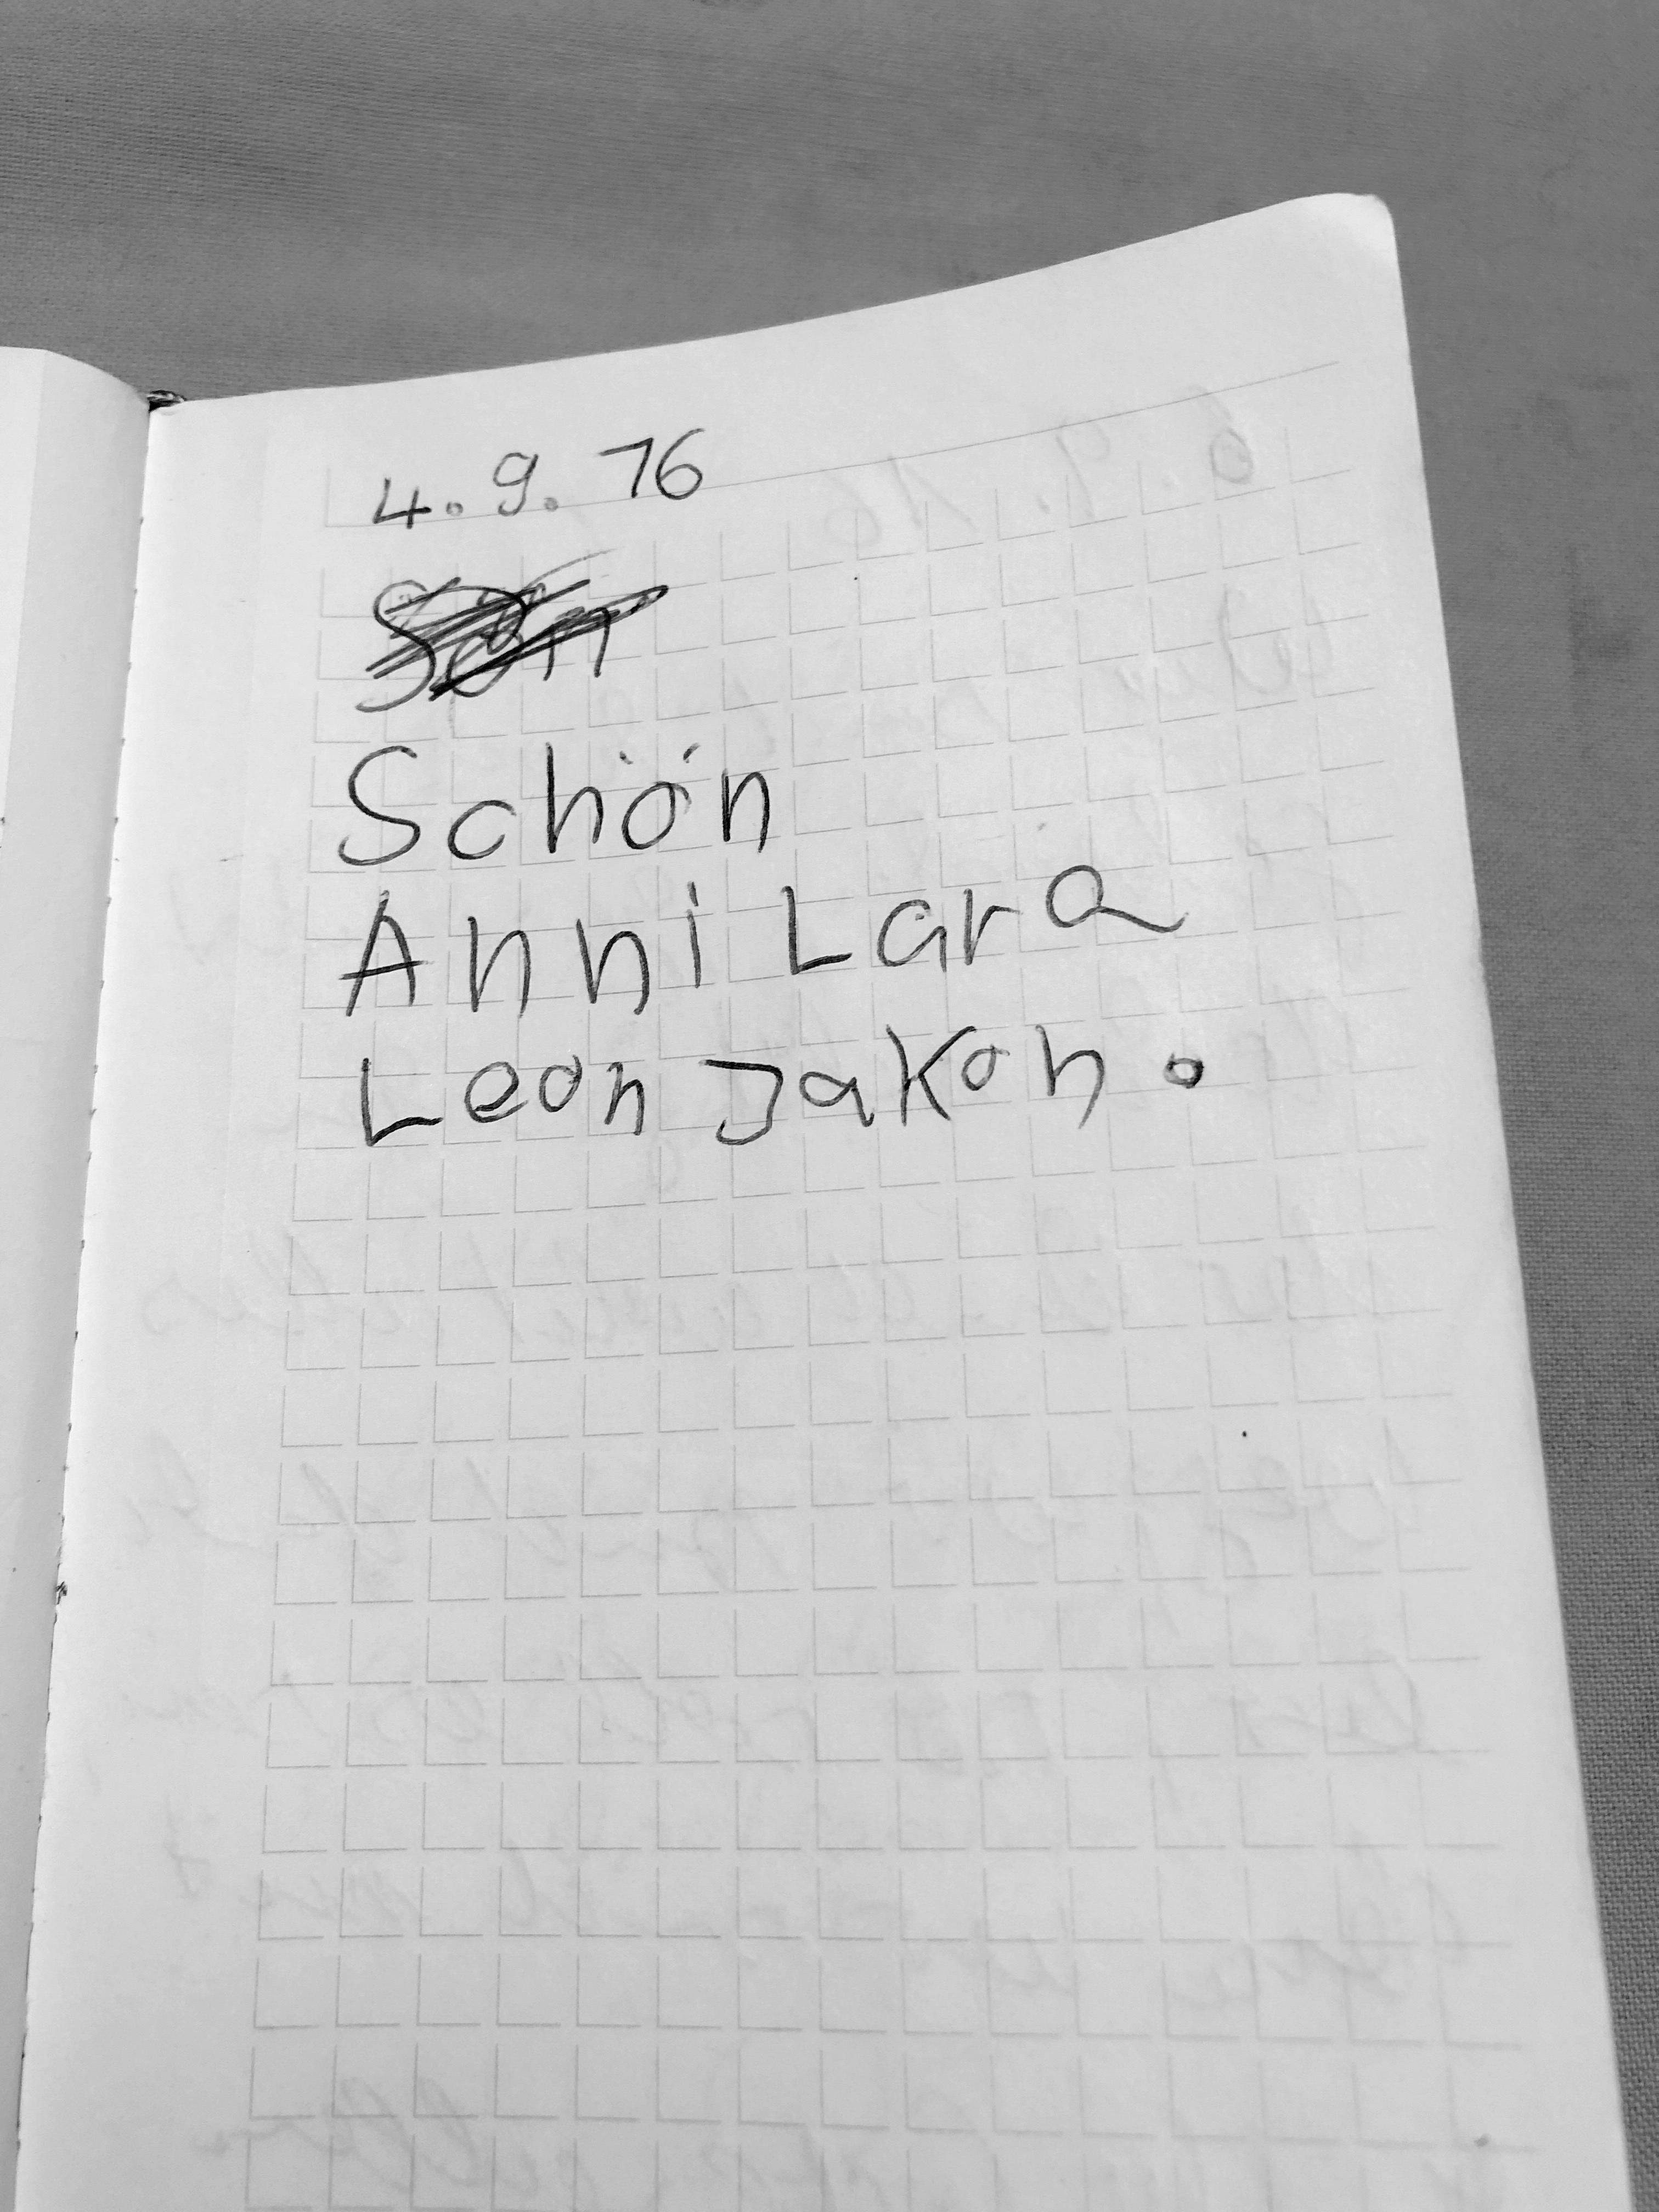 4. 9. 16
Schön
Anni Lara
Leon Jakon.